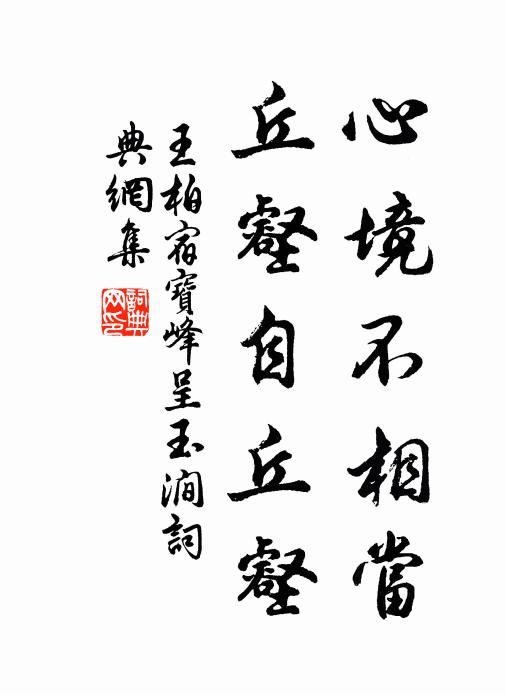 心境不相當
丘壑自丘壑
王柏宿寶峰呈玉澗詞
典網集
詞典
网印